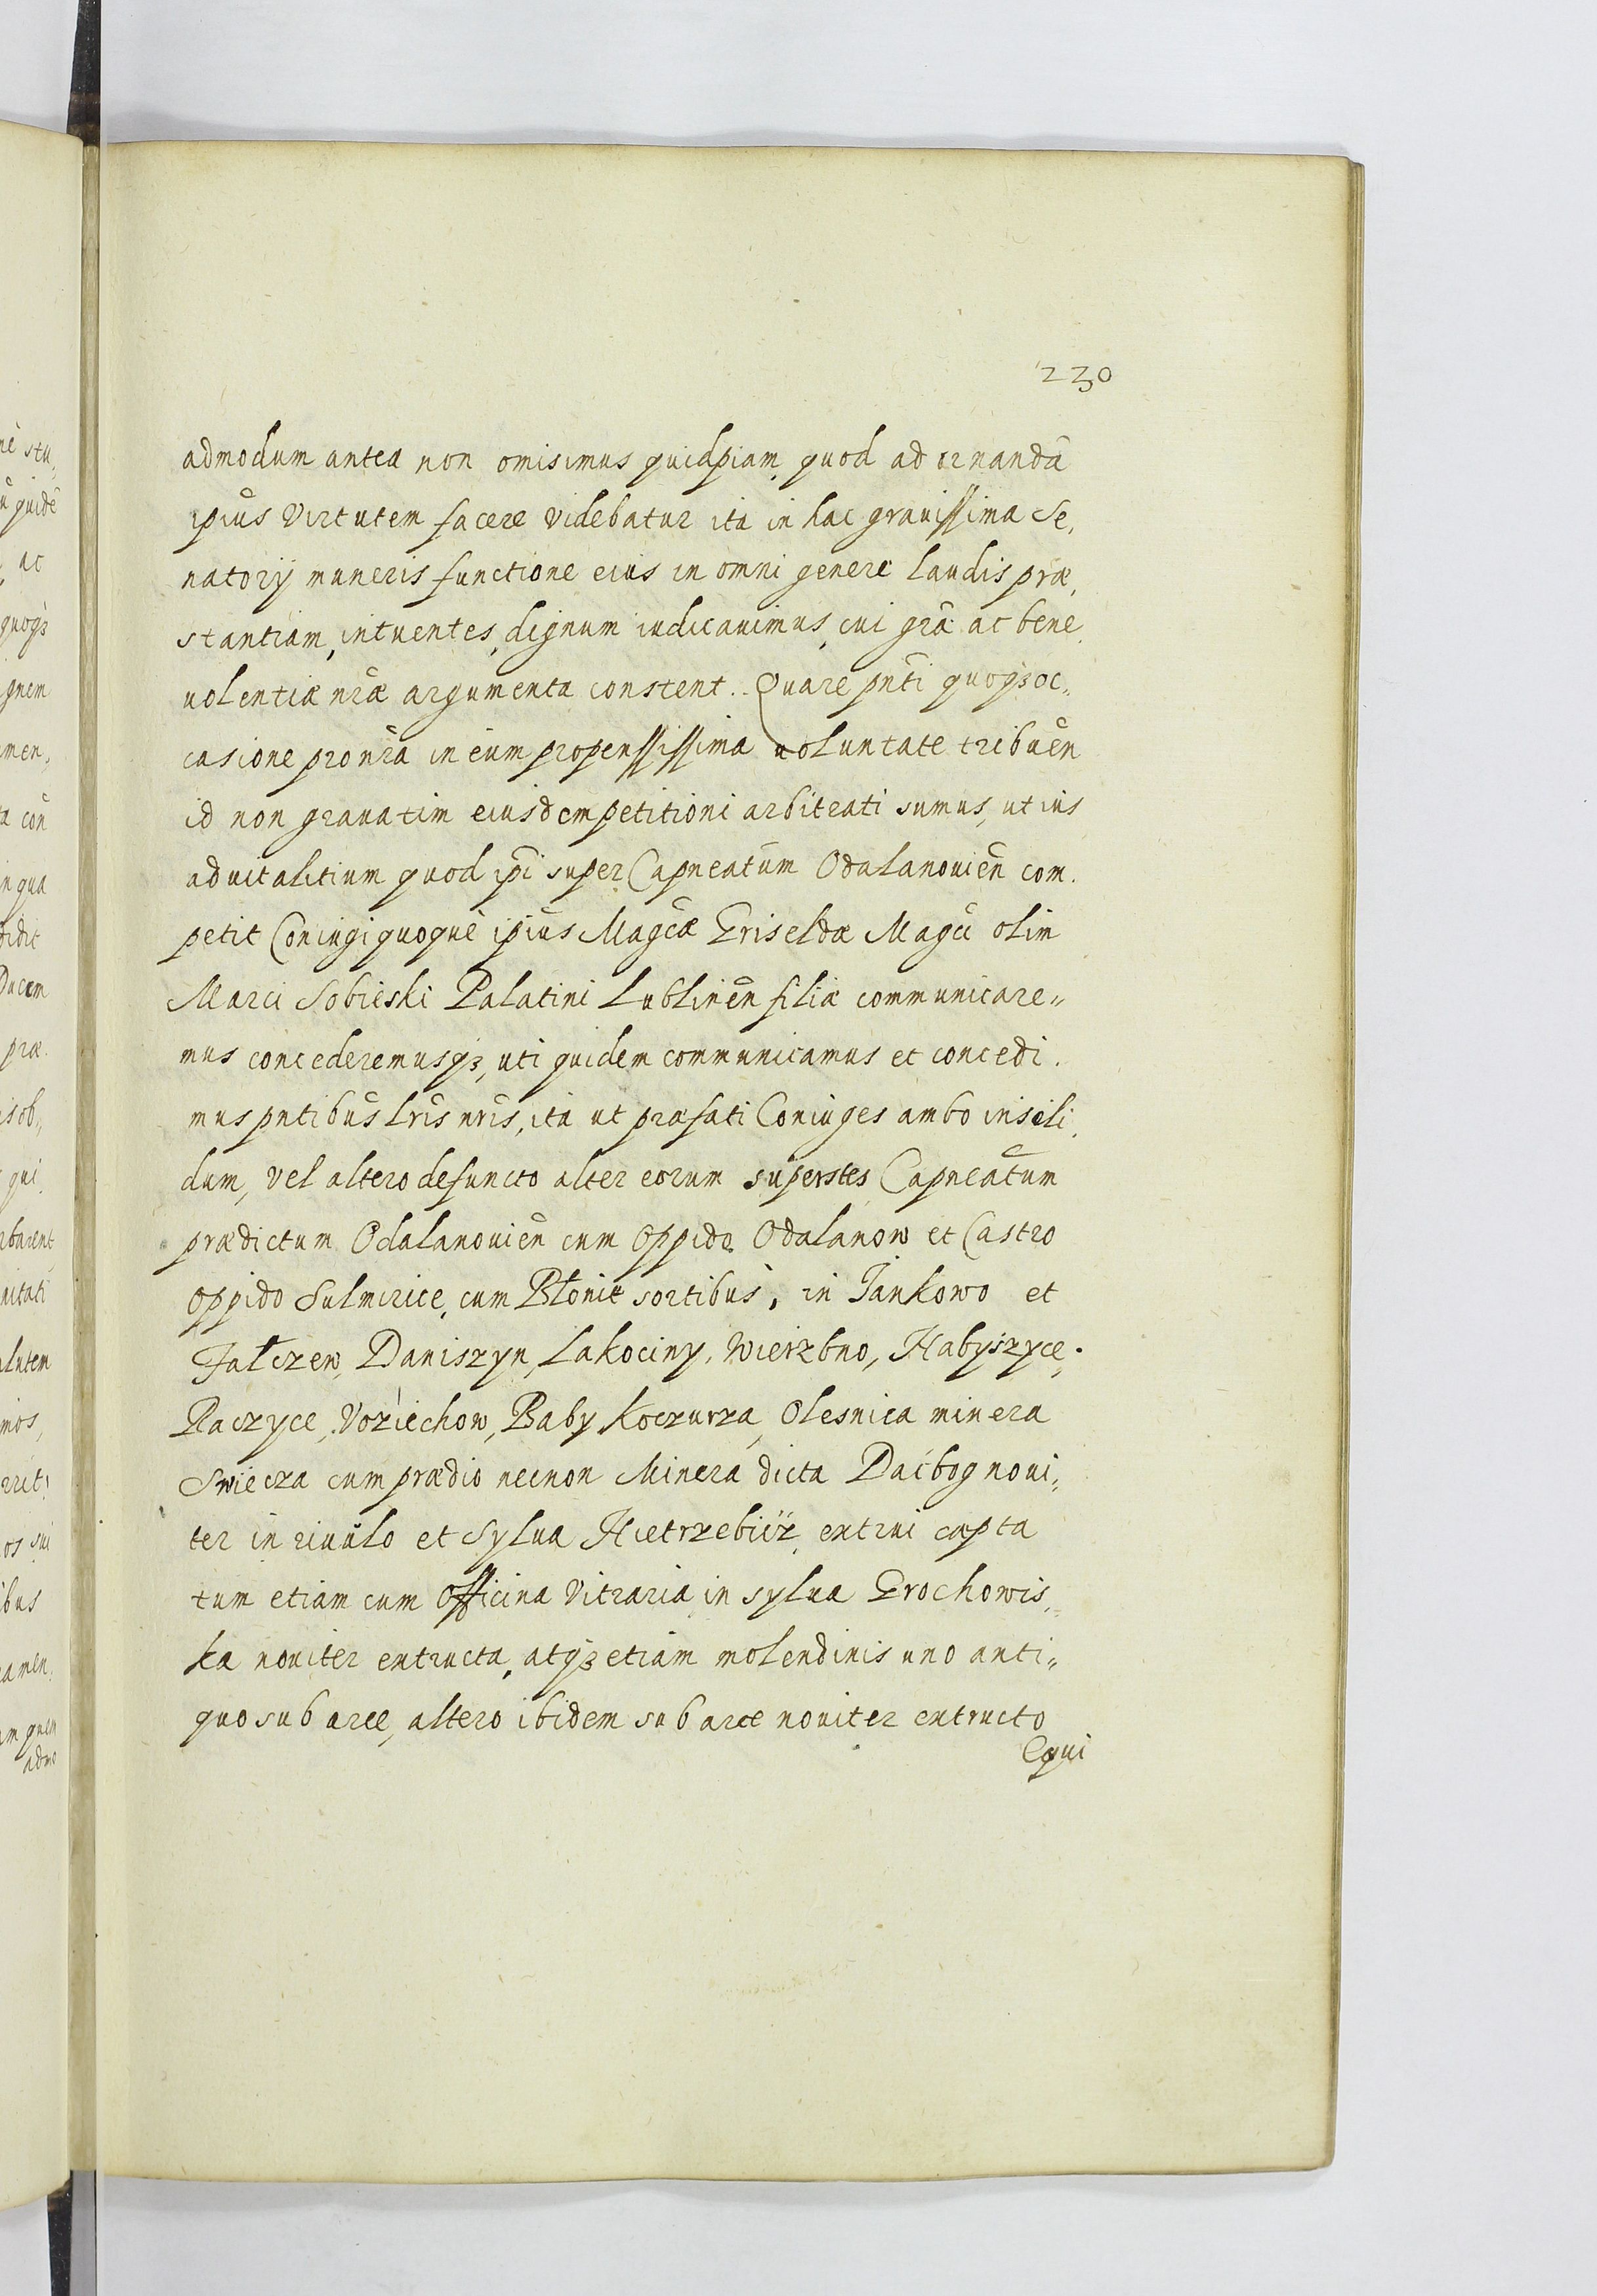 230
admodum antea non omisimus quidpiam quod ad ornandā
ipīus Virtutem facere videbatur ita in hac grauissima Se,
natorij muneris functione eius in omni genere laudis præ,
stantiam, intuentes, dignum iudicauimus, cui grā ac bene,
uolentiæ nr̄æ argumenta constent. Quare pn̄ti quoqꝫ oc,,
casione pro nr̄a in eum propenssissima uoluntate tribuen̄
id non grauatim eiusdem petitioni arbitrati sumus, ut ius
aduitalitium quod ip̄i super Capneatūm Odalanouien̄ com.
petit Coniugi quoque ipīus Magcæ Griseldæ Magci olim
Marci Sobieski Palatini Lublinen̄ filiæ communicare,,
mus concederemusqꝫ, uti quidem communicamus et concedi.
mus pn̄tibus lrīs nrīs, ita ut præfati Coniuges ambo insoli,
dum, vel altero defuncto alter eorum superstes Capneatum
prædictum Odalanouien̄ cum Oppido Odalanow et Castro
oppido Sulmirice, cum Błonie sortibus, in Jankowo et
Fałczew, Daniszyn, Lakociny, Wierzbno, Habyszyce,.
Raczyce, Voziechow, Baby Koczurza, Olesnica minera
Swiecza cum prædio necnon Minera dicta Daćbog noui,,
ter in riuulo et Sylua extrui capta
tum etiam cum Officina Vitraria in sylua Grochowis,,
ka nouiter extructa, atqꝫ etiam molendinis uno anti,,
quo sub arce, altero ibidem sub arce nouiter extructo
Equi